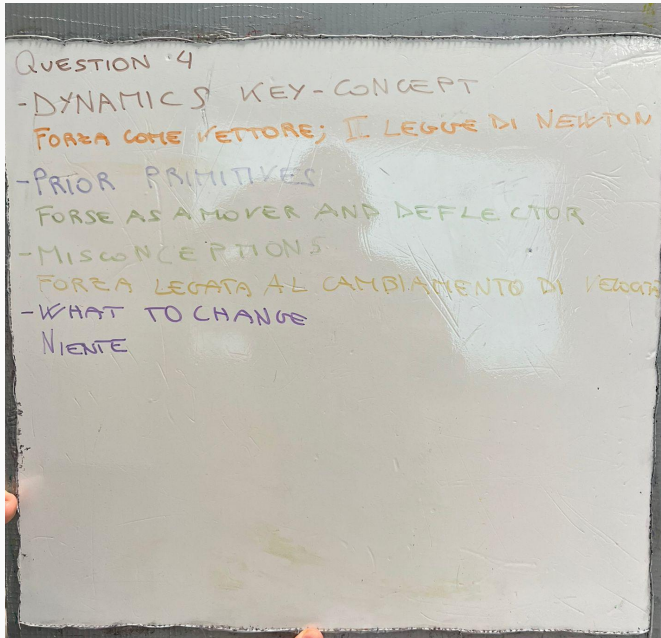 QUESTION 4
- DYNAMICS KEY-CONCEPT
FORZA COME VETTORE; I LEGGE DI NEWTON
- PRIOR PRIMITIVES
FORSE AS A MOVER AND DEFLECTOR
- MISCONCEPTIONS
FORZA LEGATA AL CAMBIAMENTO DI VELOCITÀ
- WHAT TO CHANGE
NIENTE